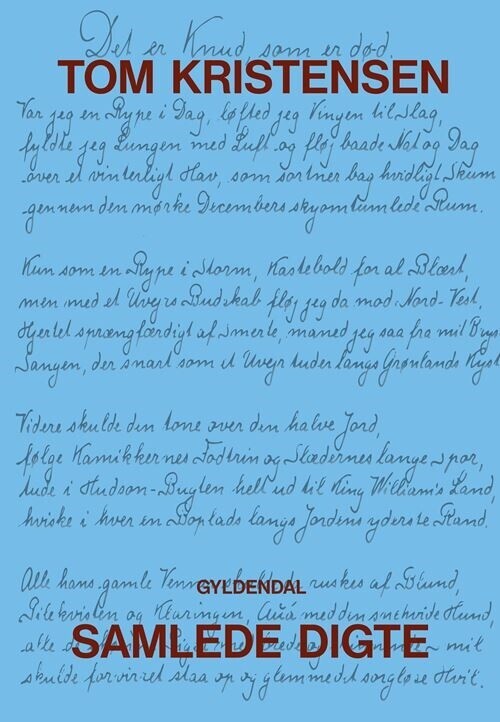 Det er Knud, som er død.
TOM KRISTENSEN
Var jeg en Rype i Dag, løfted jeg Vingen til Slag,
fyldte jeg Lungen med Luft og fløj baade Nat og Dag
over et vinterligt Hav, som sortner bag hvidligt Skum
gennem den mørke Decembers skyomtumlede Rum.
Kun som en Rype i Storm, Kastebold for al Blæst,
men med et Uvejrs Budskab fløj jeg da mod Nord-Vest,
Hjertet sprængfærdigt af Smerte, maned jeg saa fra mit Brys
Sangen, der snart som et Uvejr tuder langs Grønlands Kyst
Videre skulde den tone over den halve Jord,
følge Kamikkernes Fodtrin og Slædernes lange Spor,
tude i Hudson-Bugten helt ud til King William's Land
hviske i hver en Boplads langs Jordens yderste Rand.
GYLDENDAL
Alle hans gamle Venner skulde ruskes af Blund,
Pilekvisten og Ætaringen, Auá med den snehvide Hund,
alle
SAMLEDE DIGTE
skulde forvirret staa op og glemme det sorgløse Hvil.